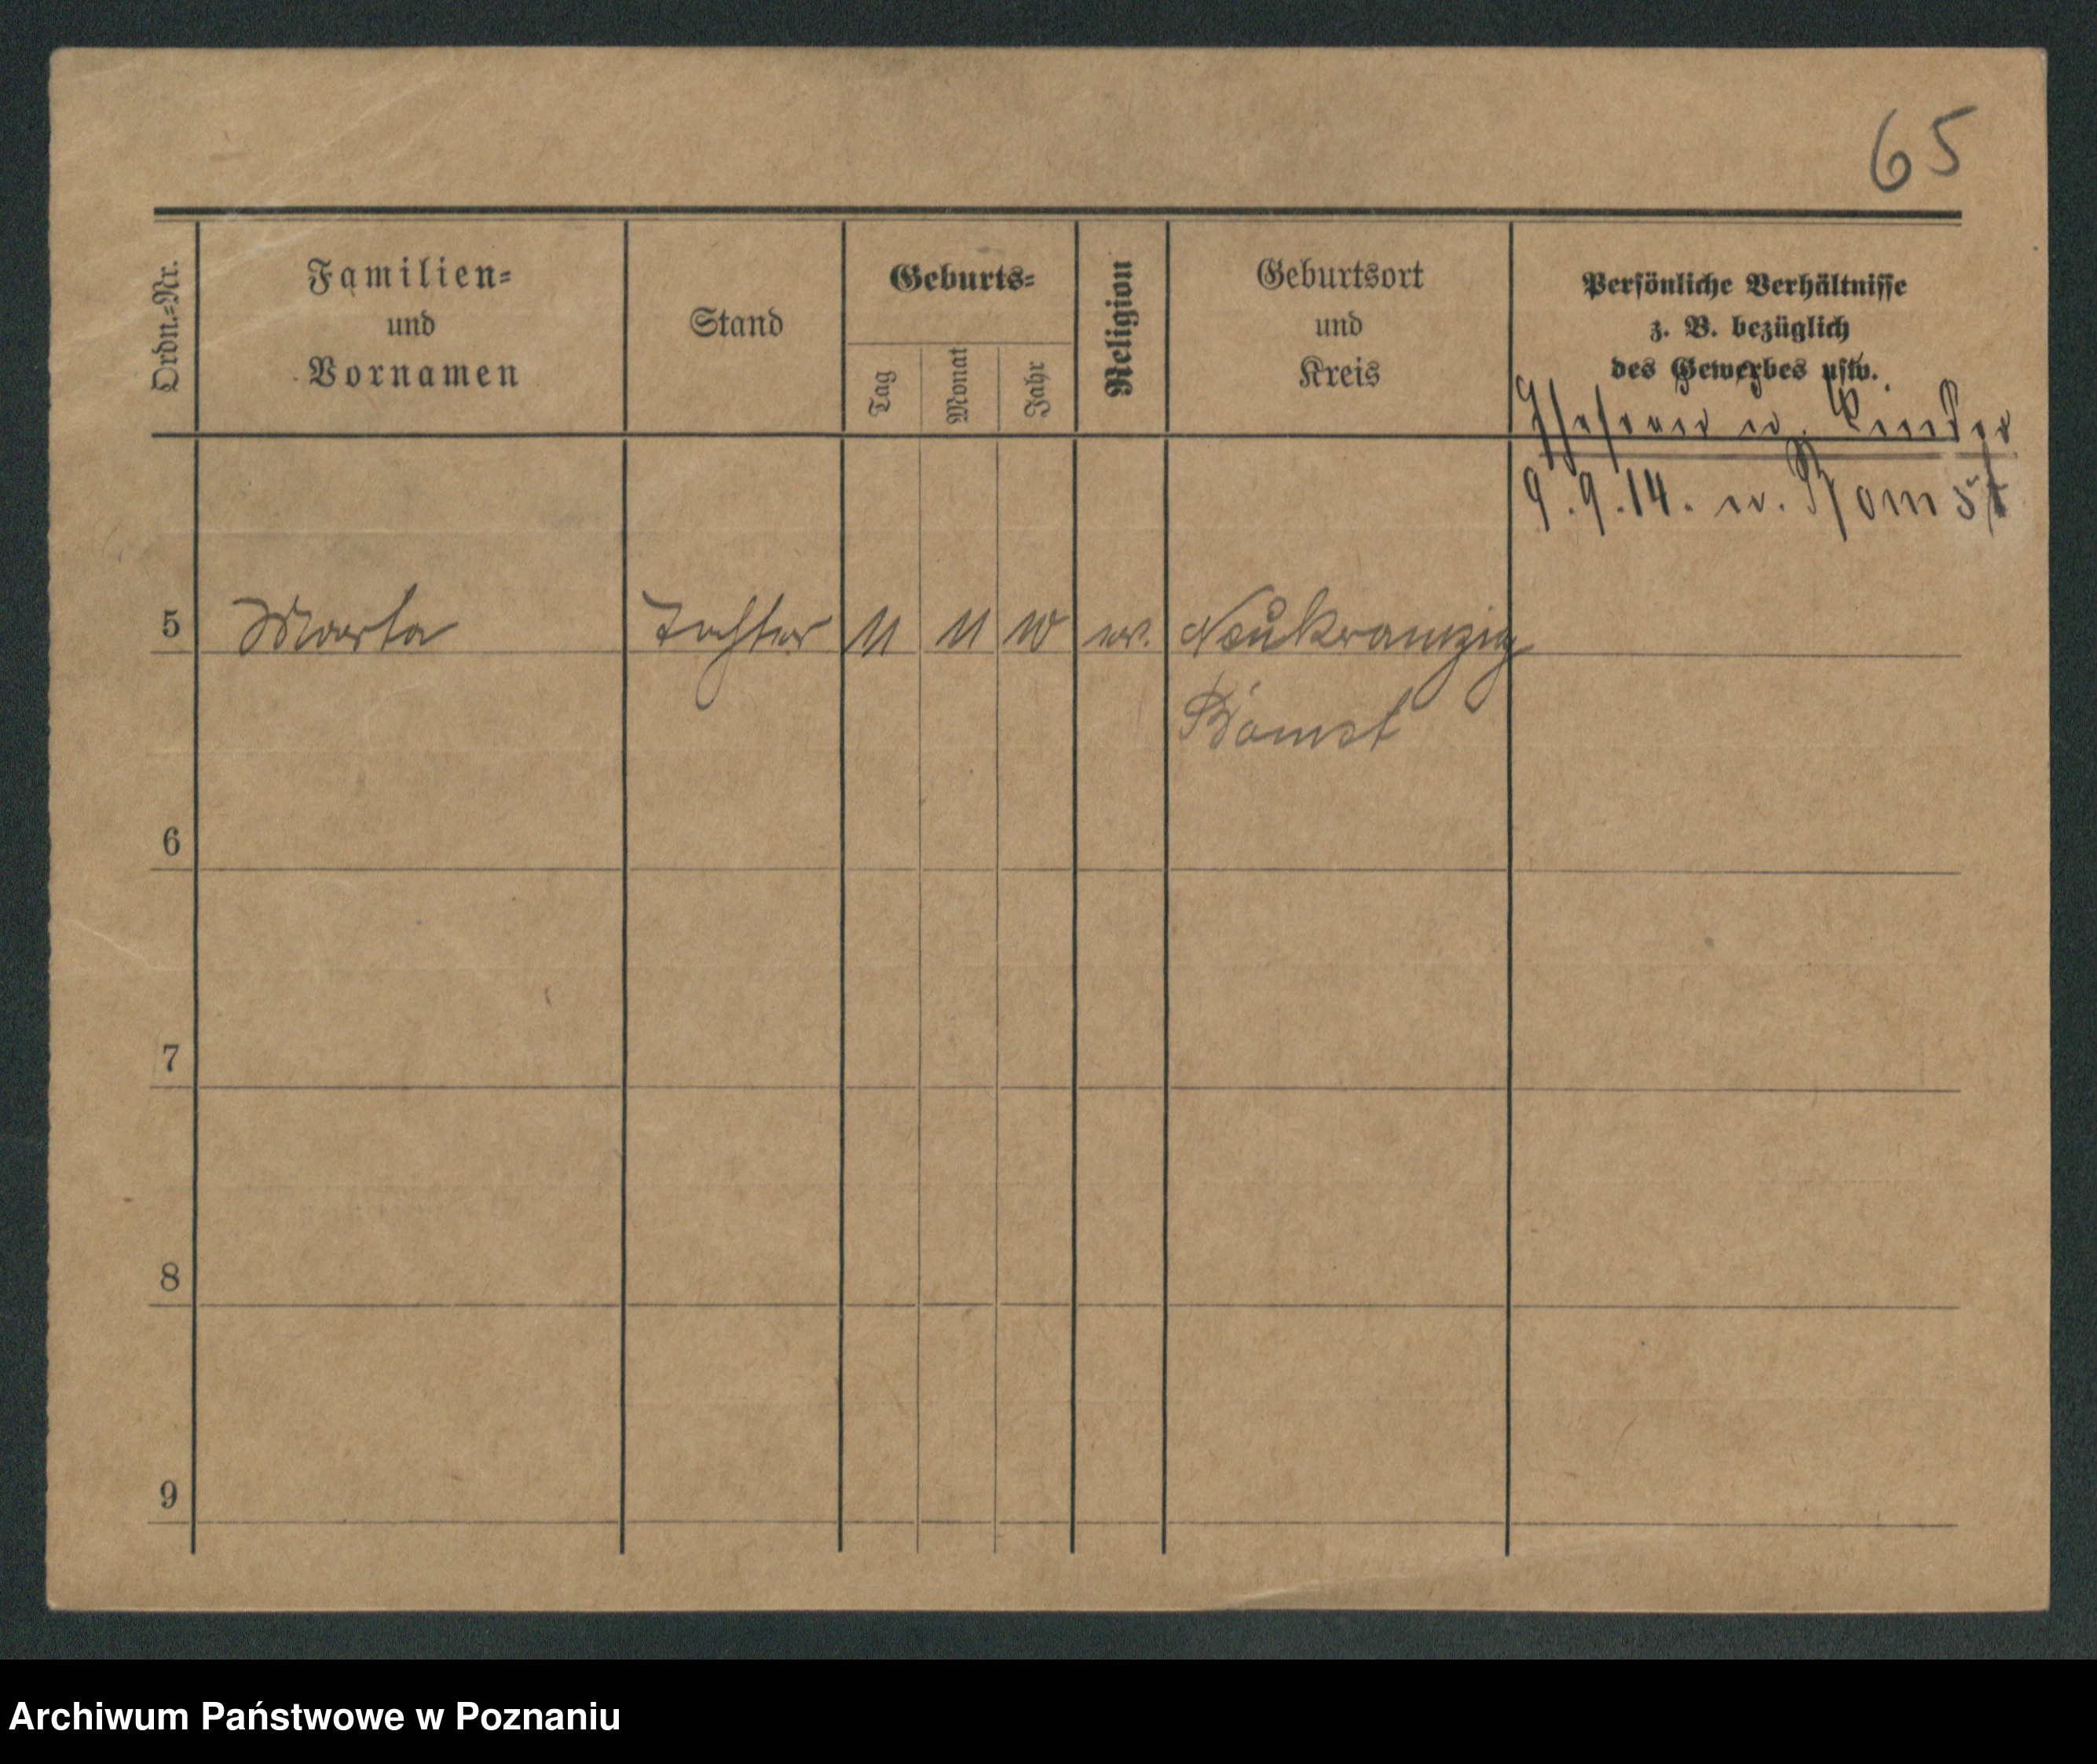 65
Ordn.=Nr.
Familien=
und
Vornamen
Stand
Geburts=
Tag
Monat
Jahr
Religion
Geburtsort
und
Kreis
Persönliche Verhältnisse
z. B. bezüglich
des Gewerbes usw.
Ehefrau u. Kinder
9.9.14. n. Bomst
5 Marta Tochter 11 11 10 ev. Neukramzig
Bomst
6
7
8
9
Archiwum Państwowe w Poznaniu